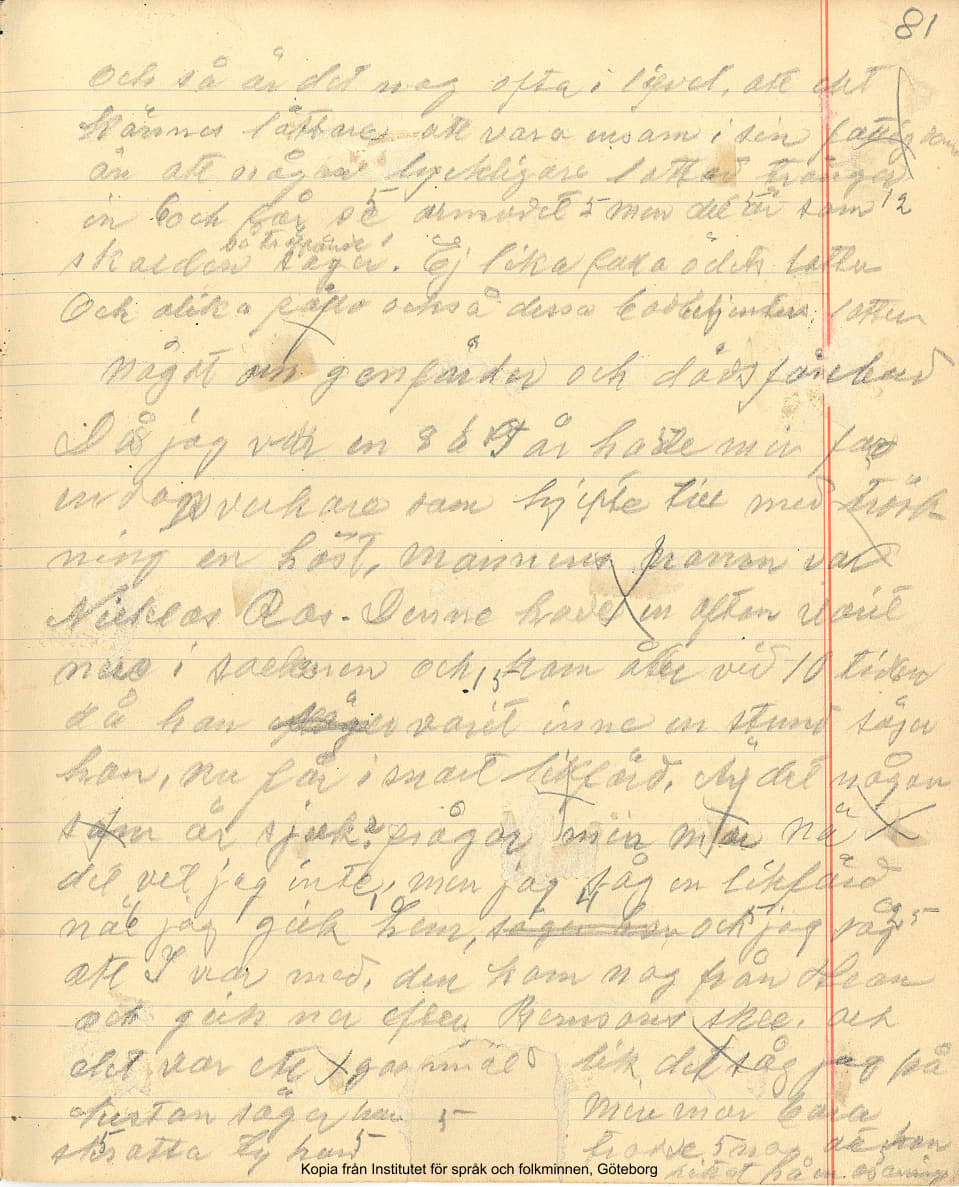 81
Och så är det nog ofta i livet, att det
kännes lättare att vara ensam i sin
än att någon lyckligare lottad tränger
in och får se armodet men det är som 12
skalden så träffande säger. Ej lika falla ödets lotter
Och olika också dessa lotter
något om gengånder och dödsförebud
Då jag var en 8 à 9 år hade min far
en dagsverkare som hjelpte till med trösk
ning en höst, mannens namn var
Nicklas Ros. Denne hade en afton varit
nere i socknen och kom åter vid 10 tiden
då han varit inne en stund säger
han, nu får i snart likfärd. Är det någon
som är sjuk? frågar min mor Nä
det vet jag inte, men jag såg en likfärd
när jag gick hem, säger han och jag såg
att I var med, den kom nog från
och gick ner efter skee. och
det var ett gammalt lik det såg jag på
kistan säger han Men mor bara
skratta ty hon trodde nog att han
Kopia från Institutet för språk och folkminnen, Göteborg